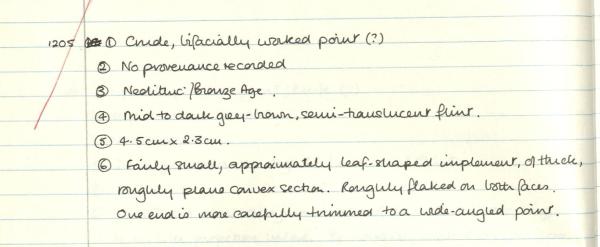 1205 ① Crude, bifacially worked point (?)
② No provenance recorded
③ Neolithic/Bronze Age.
④ Mid to dark grey-brown, semi-translucent flint.
⑤ 4.5cm x 2.3cm.
⑥ Fairly small, approximately leaf-shaped implement, of thick,
roughly plano convex section. Roughly flaked on both faces.
One end is more carefully trimmed to a wide-angled point.